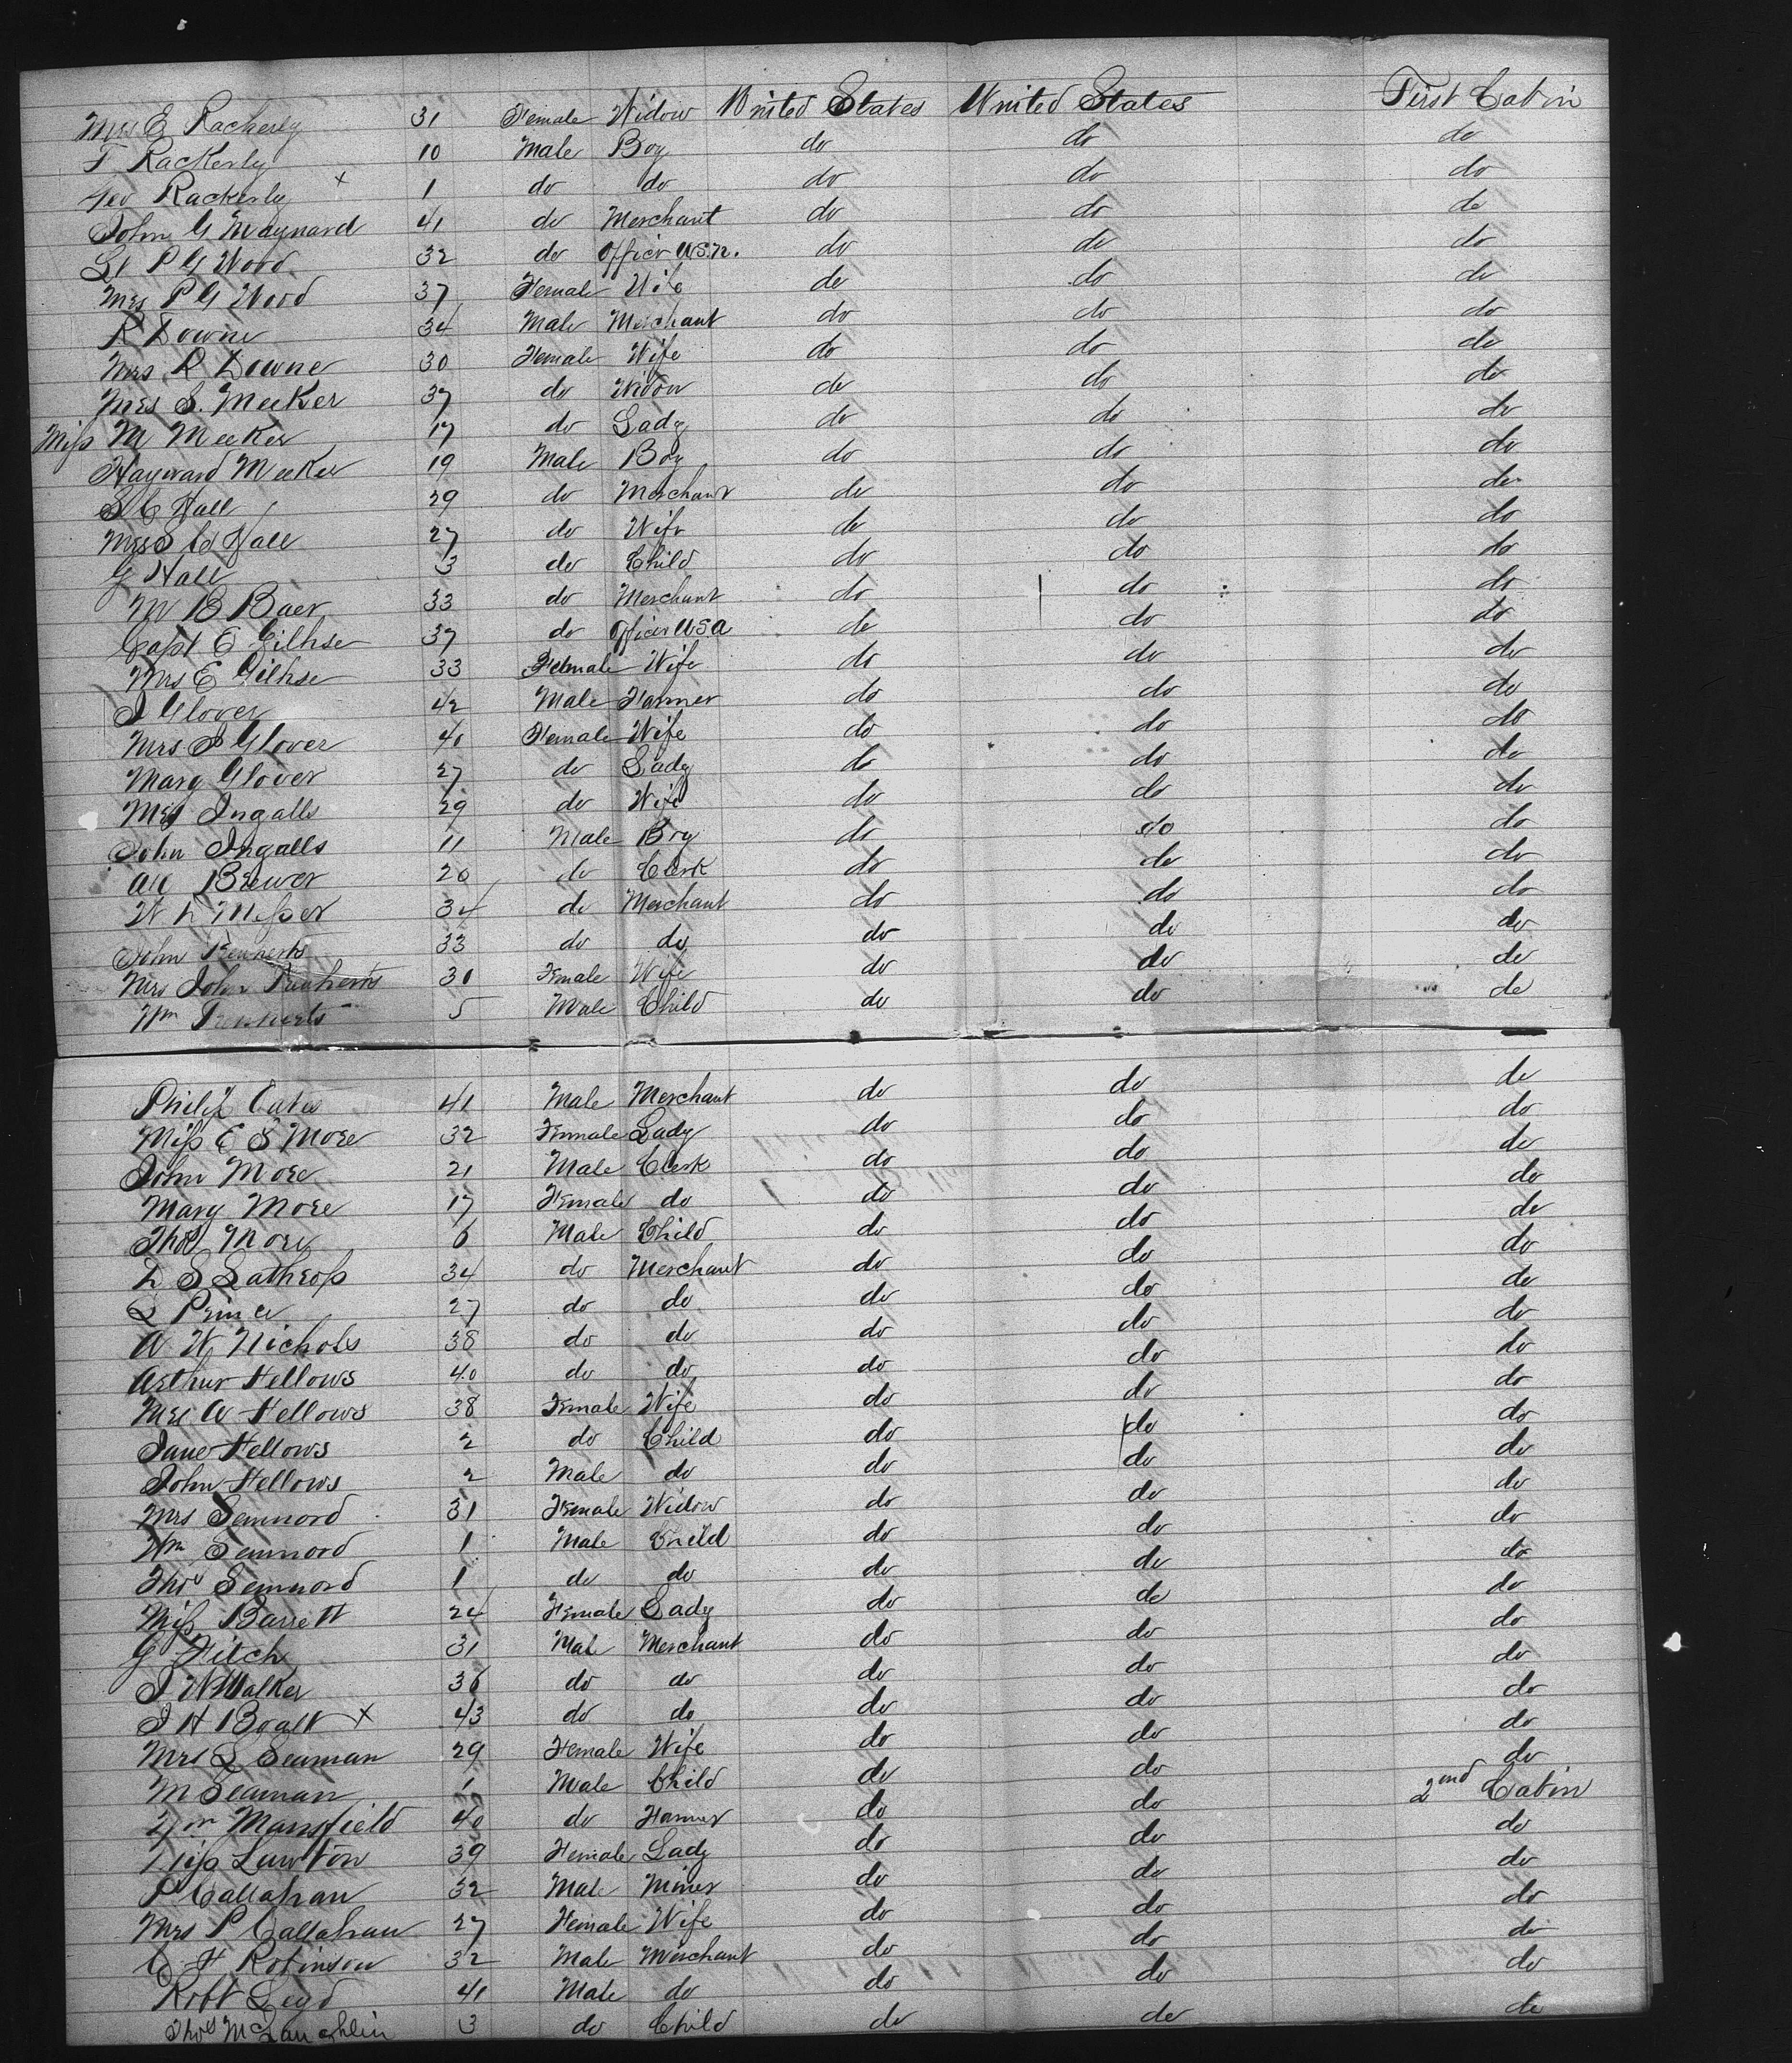 Mrs E Rackerly 31 Female Widow United States United States First Cabin
F Rackerly 10 Male Boy do do do
Geo Rackerly x 1 do do do do do
John G Maynard 41 do Merchant do do do
Lt P G Wood 32 do Officer U.S.N. do do do
Mrs P G Wood 37 Female Wife do do do
R Downe 34 Male Merchant do do do
Mrs R Downe 30 Female Wife do do do
Mrs S. Meeker 37 do Widow do do do
Miss M Meeker 17 do Lady do do do
Hayward Meeker 19 Male Boy do do do
S C Hall 29 do Merchant do do do
Mrs S C Hall 27 do Wife do do do
G Hall 3 do Child do do do
M B Baer 33 do Merchant do do do
Capt E Gilhse 37 do Officer USA do do do
Mrs E Gilhse 33 Female Wife do do do
J Glover 42 Male Farmer do do do
Mrs J Glover 40 Female Wife do do do
Mary Glover 27 do Lady do do do
Mrs Ingalls 29 do Wife do do do
John Ingalls 11 Male Boy do do do
Brewer 20 do Clerk do do do
W L Messer 34 do Merchant do do do
John 33 do do do do do
Mrs John 30 Female Wife do do do
Wm 5 Male Child do do do
Philip 41 Male Merchant do do do
Miss E S More 32 Female Lady do do do
John More 21 Male Clerk do do do
Mary More 17 Female do do do do
Thos More 6 Male Child do do do
L S Lathrop 34 do Merchant do do do
L Prince 27 do do do do do
A W Nichols 38 do do do do do
Arthur Fellows 40 do do do do do
Mrs A Fellows 38 Female Wife do do do
Jane Fellows 2 do Child do do do
John Fellows 2 Male do do do do
Mrs Semnord 31 Female Widow do do do
Wm Semnord 1 Male Child do do do
Thos Semnord 1 do do do do do
Miss Barrett 24 Female Lady do do do
G Fitch 31 Mal Merchant do do do
J W Walker 36 do do do do do
J H Boalt x 43 do do do do do
Mrs L Seaman 29 Female Wife do do do
M Seaman 1 Male Child do do do
Wm Mansfield 40 do Farmer do do 2nd Cabin
Miss Lawton 39 Female Lady do do do
P Callahan 32 Male Miner do do do
Mrs P Callahan 27 Female Wife do do do
C H Robinson 32 Male Merchant do do do
Robt Legd 41 Male do do do do
Thos McLaughlin 3 do Child do do do